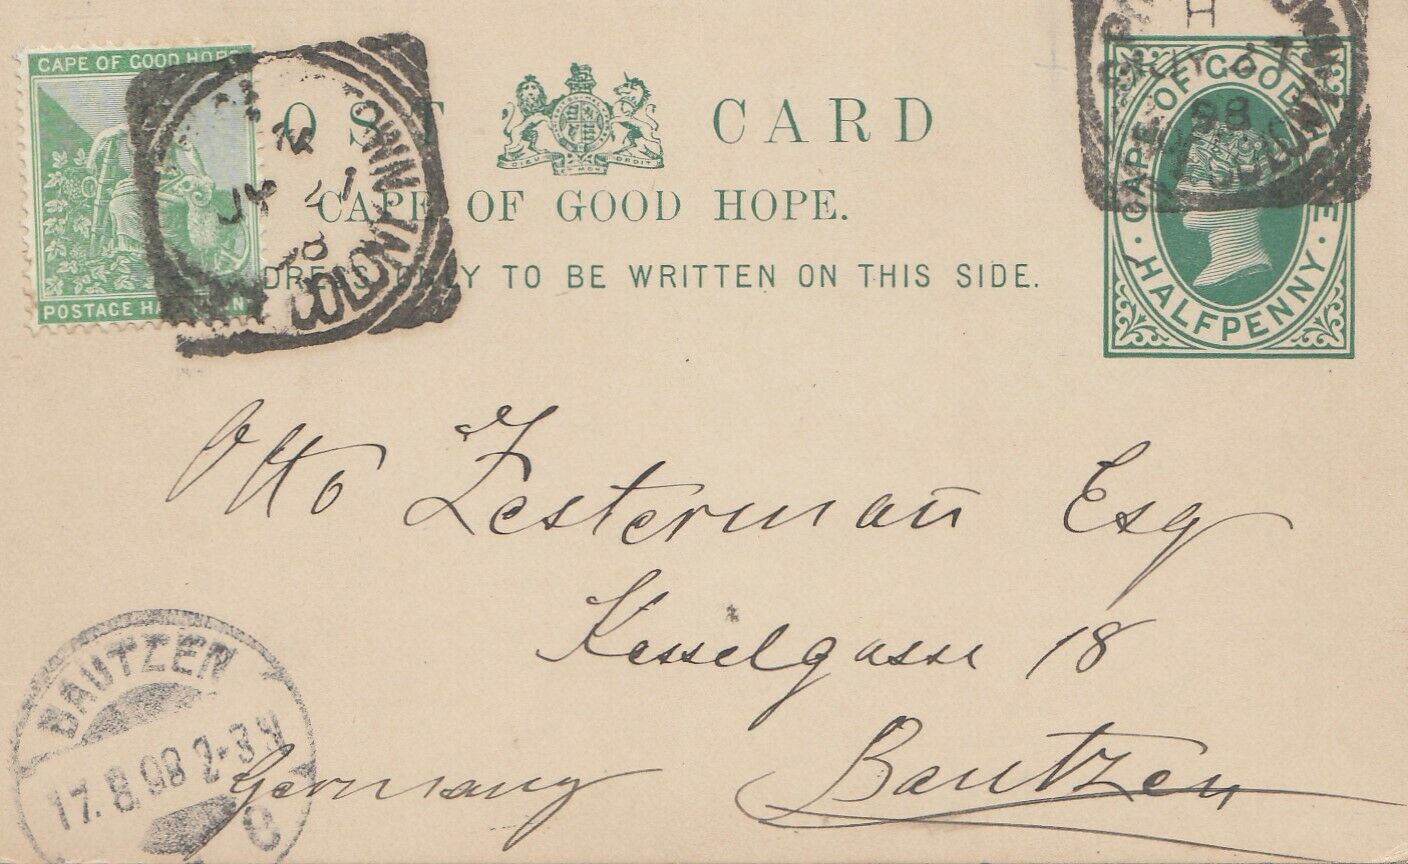 CAPE OF GOOD HOPE
POSTAGE HA
OST CARD
DIEU ET MON DROIT
CAPE OF GOOD HOPE.
TO BE WRITTEN ON THIS SIDE.
CAPE OF GOOD
HALFPENNY
TOWN
JY 27
COLONY
H
98
Otto Zesterman̄ Esq
Kesselgasse 18
Bautzen
Germany
BAUTZEN
17.8.98 2-3 N